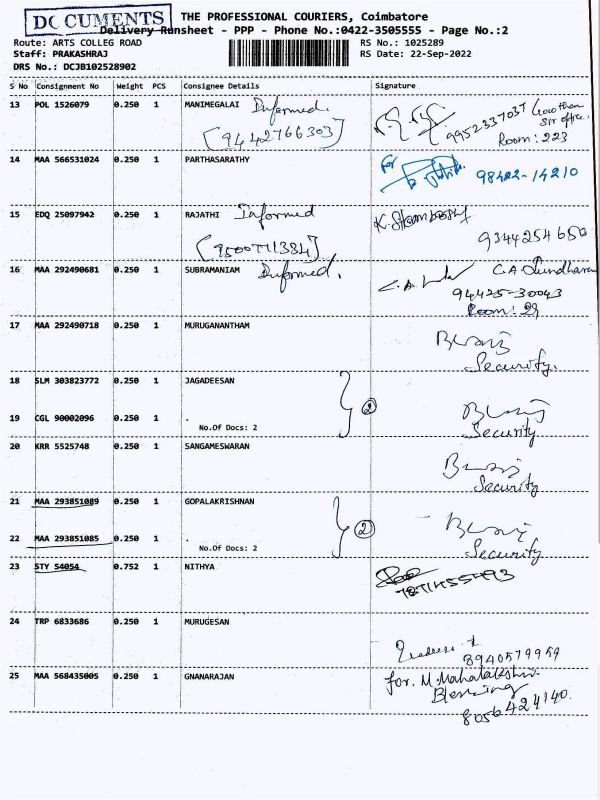 DOCUMENTS
THE PROFESSIONAL COURIERS, Coimbatore
Delivery Runsheet - PPP - Phone No.:0422-3505555 - Page No.:2
Route: ARTS COLLEG ROAD RS No.: 1025289
Staff: PRAKASHRAJ RS Date: 22-Sep-2022
DRS No.: DCJB102528902
S No Consignment No Weight PCS Consignee Details Signature
13 POL 1526079 0.250 1 MANIMEGALAI Informed. 9952337037 Gowtham
[9442766303] Sir office.
Room: 223
14 MAA 566531024 0.250 1 PARTHASARATHY for
98422-14210
15 EDQ 25097942 0.250 1 RAJATHI Informed K.
[9500711384] 9344254650
16 MAA 292490681 0.250 1 SUBRAMANIAM Informed. C.A. C.A
94425-30043
Room: 29
17 MAA 292490718 0.250 1 MURUGANANTHAM
Security.
18 SLM 303823772 0.250 1 JAGADEESAN
2
19 CGL 90002096 0.250 1 .
Security
No.Of Docs: 2
20 KRR 5525748 0.250 1 SANGAMESWARAN
Security
21 MAA 293851089 0.250 1 GOPALAKRISHNAN
2
22 MAA 293851085 0.250 1 .
No.Of Docs: 2 Security
23 STY 54054 0.752 1 NITHYA
24 TRP 6833686 0.250 1 MURUGESAN
8940579959
25 MAA 568435005 0.250 1 GNANARAJAN for. M. Mahalakshmi.
Blessing
8056424140.